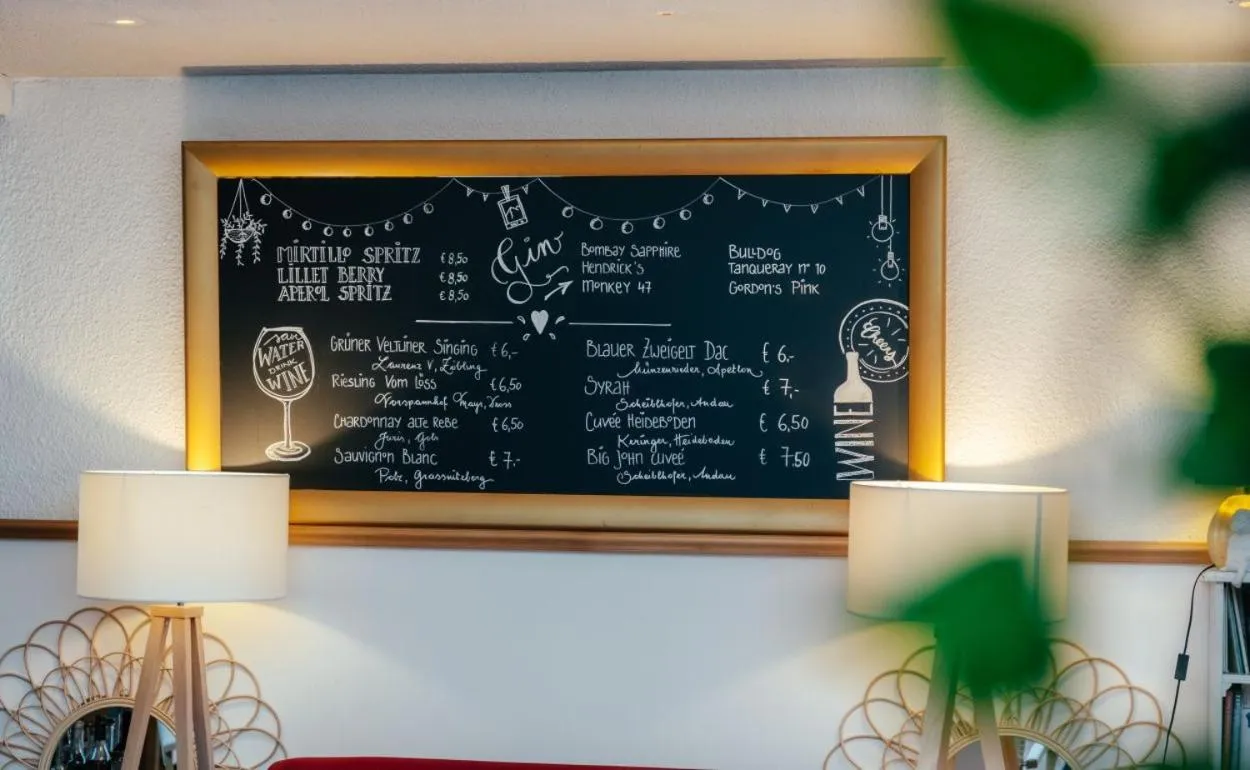 MIRTILLO SPRITZ € 8,50
LILLET BERRY € 8,50
APEROL SPRITZ € 8,50
Gin
BOMBAY SAPPHIRE
HENDRICK'S
MONKEY 47
BULLDOG
TANQUERAY N° 10
GORDON'S PINK
save
WATER
DRINK
WINE
GRÜNER VELTLINER SINGING € 6,-
Laurenz V, Zöbing
RIESLING VOM LÖSS € 6,50
CHARDONNAY ALTE REBE € 6,50
Juris, Gols
SAUVIGNON BLANC € 7,-
BLAUER ZWEIGELT DAC € 6,-
Münzenrieder, Apetlon
SYRAH € 7,-
Scheiblhofer, Andau
CUVÉE HEIDEBODEN € 6,50
Keringer, Heideboden
BIG JOHN CUVÉE € 7.50
Scheiblhofer, Andau
Cheers
WINE